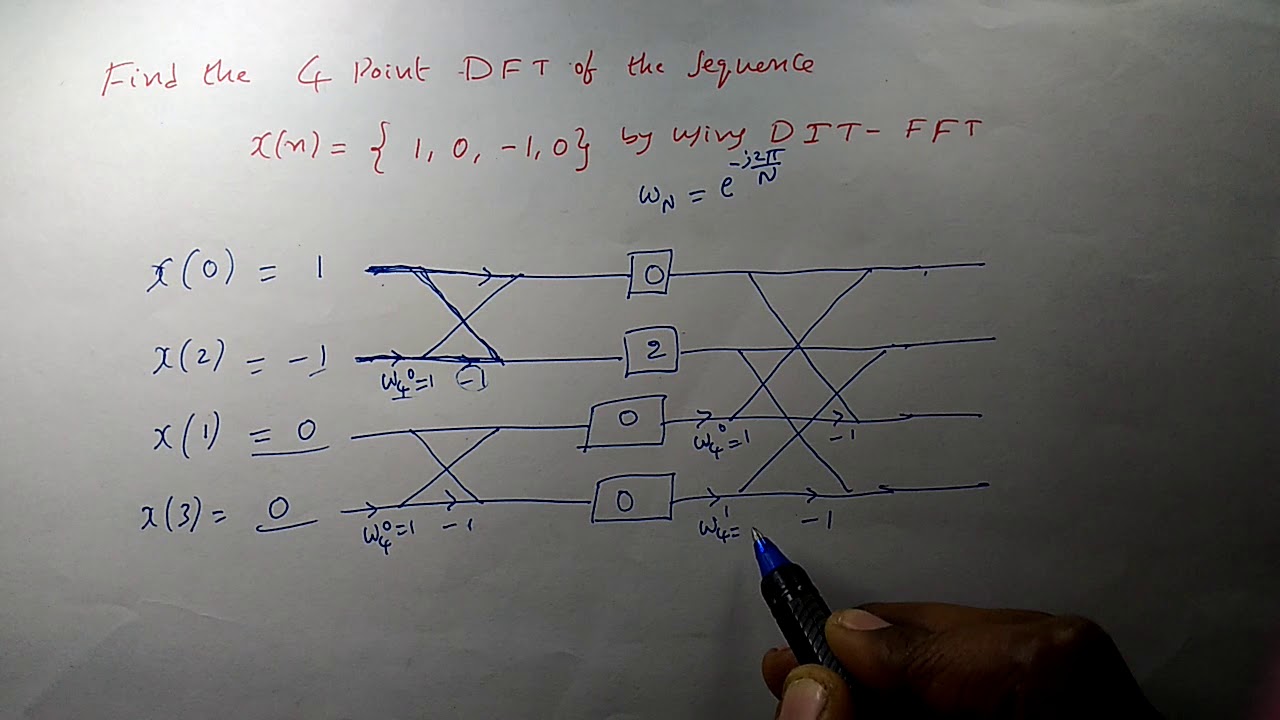 Find the 4 Point DFT of the sequence
x(n) = { 1, 0, -1, 0} by using DIT - FFT
ω_N = e^(-j2π/N)
x(0) = 1 0
x(2) = -1 2
ω₄⁰=1 -1
x(1) = 0 0
ω₄⁰=1 -1
x(3) = 0 0
ω₄⁰=1 -1 ω₄¹= -1